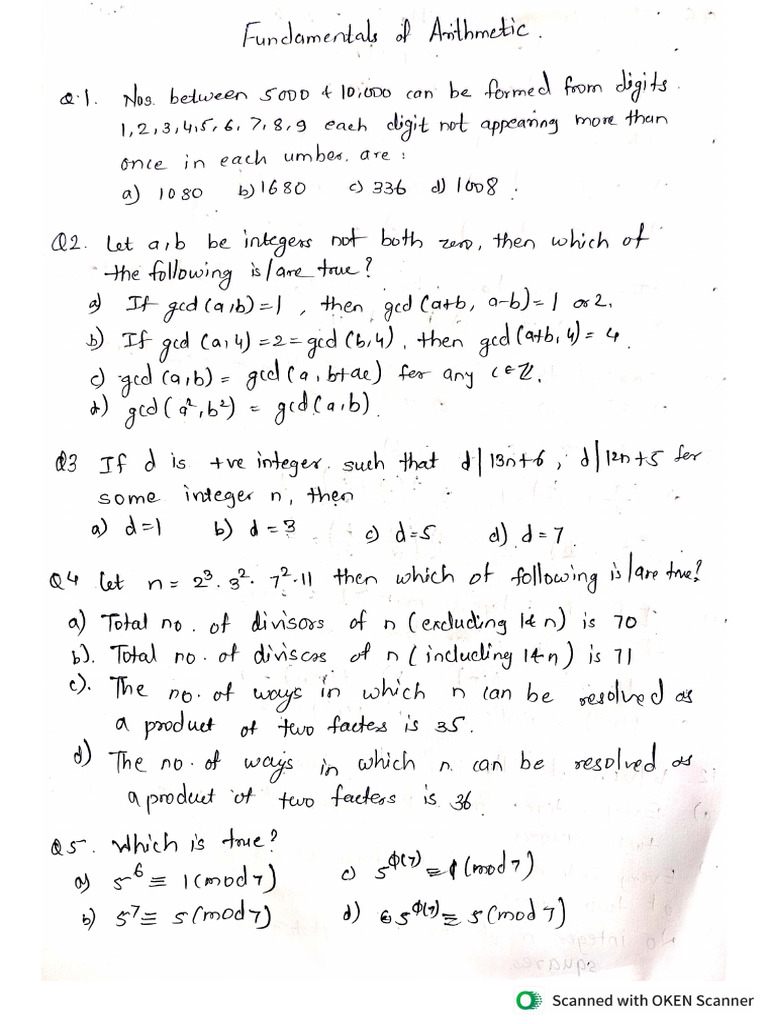 Fundamentals of Arithmetic.
Q.1. Nos. between 5000 & 10,000 can be formed from digits
1,2,3,4,5, 6, 7, 8, 9 each digit not appearing more than
once in each umber. are :
a) 1080 b) 1680 c) 336 d) 1008 .
Q2. Let a,b be integers not both zero, then which of
the following is/are true?
a) If gcd(a,b)=1 , then gcd(a+b, a-b)=1 or 2.
b) If gcd(a,4)=2=gcd(b,4), then gcd(a+b,4)=4.
c) gcd(a,b) = gcd(a, b+ac) for any c∈ℤ.
d) gcd(a²,b²) = gcd(a,b).
Q3 If d is +ve integer such that d|13n+6 , d|12n+5 for
some integer n, then
a) d=1 b) d=3 c) d=5 d) d=7.
Q4 Let n= 2³. 3². 7².11 then which of following is/are true?
a) Total no. of divisors of n (excluding 1& n) is 70
b). Total no. of divisors of n (including 1&n) is 71
c). The no. of ways in which n can be resolved as
a product of two factors is 35.
d) The no. of ways in which n can be resolved as
a product of two factors is 36.
Q5. Which is true?
a) 5⁶ ≡ 1(mod 7) c) 5^ϕ(7) ≡ 1(mod 7)
b) 5⁷ ≡ 5(mod 7) d) 65^ϕ(7) ≡ 5(mod 7)
Scanned with OKEN Scanner